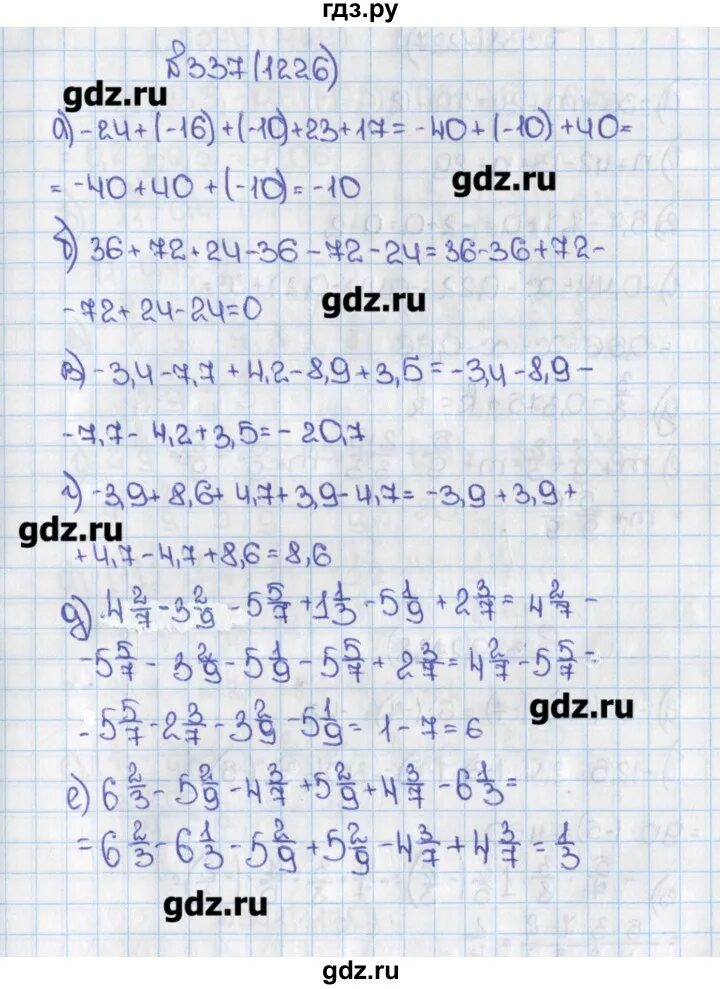 гдз.ру
№337(1226)
gdz.ru
а) -24+(-16)+(-10)+23+17= -40+(-10)+40=
= -40+40+(-10)=-10
gdz.ru
б) 36+72+24-36-72-24=36-36+72-
-72+24-24=0
gdz.ru
в) -3,4-7,7+4,2-8,9+3,5=-3,4-8,9-
-7,7-4,2+3,5=-20,7
г) -3,9+8,6+4,7+3,9-4,7= -3,9+3,9+
gdz.ru
+4,7-4,7+8,6=8,6
д) 4 2/7 - 3 2/9 - 5 5/7 + 1 1/3 - 5 1/9 + 2 3/7 = 4 2/7 -
-5 5/7 - 3 2/9 - 5 1/9 - 5 5/7 + 2 3/7 = 4 2/7 - 5 5/7 -
gdz.ru
- 5 5/7 - 2 3/7 - 3 2/9 - 5 1/9 = 1-7=6
е) 6 2/3 - 5 2/9 - 4 3/7 + 5 2/9 + 4 3/7 - 6 1/3 =
= 6 2/3 - 6 1/3 - 5 2/9 + 5 2/9 - 4 3/7 + 4 3/7 = 1/3
gdz.ru
gdz.ru